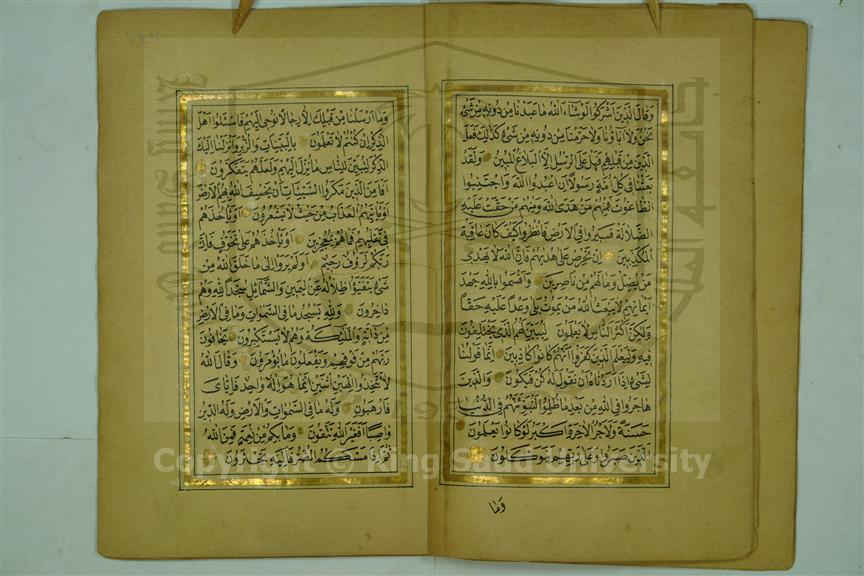 وقال الذين اشركوا لوشاء الله ما عبدنا من دونه من شئ
نحن ولا آباؤنا ولا حرمنا من دونه من شئ كذلك فعل
الذين من قبلهم فهل على الرسل الا البلاغ المبين ولقد
بعثنا في كل امة رسولا ان اعبدوا الله واجتنبوا
الطاغوت فمنهم من هدى الله ومنهم من حقت عليه
الضلالة فسيروا في الارض فانظروا كيف كان عاقبة
المكذبين ان تحرص على هديهم فان الله لا يهدى
من يضل وما لهم من ناصرين واقسموا بالله جهد
ايمانهم لا يبعث الله من يموت بلى وعدا عليه حقا
ولكن اكثر الناس لا يعلمون ليبين لهم الذى يختلفون
فيه وليعلم الذين كفروا انهم كانوا كاذبين انما قولنا
لشئ اذا اردناه ان نقول له كن فيكون والذين
هاجروا في الله من بعد ما ظلموا لنبوئنهم في الدنيا
حسنة ولاجر الاخرة اكبر لو كانوا يعلمون
الذين صبروا وعلى ربهم يتوكلون
وما
وما ارسلنا من قبلك الا رجالا نوحى اليهم فاسئلوا اهل
الذكر ان كنتم لا تعلمون بالبينات والزبر وانزلنا اليك
الذكر لتبين للناس ما نزل اليهم ولعلهم يتفكرون
افامن الذين مكروا السيئات ان يخسف الله بهم الارض
او ياتيهم العذاب من حيث لا يشعرون او ياخذهم
في تقلبهم فما هم بمعجزين او ياخذهم على تخوف فان
ربكم لرؤف رحيم اولم يروا الى ما خلق الله من
شئ يتفيؤا ظلاله عن اليمين والشمائل سجدا لله وهم
داخرون ولله يسجد ما في السموات وما في الارض
من دابة والملئكة وهم لا يستكبرون يخافون
ربهم من فوقهم ويفعلون ما يؤمرون وقال الله
لا تتخذوا الهين اثنين انما هو اله واحد فاياى
فارهبون وله ما في السموات والارض وله الدين
واصبا افغير الله تتقون وما بكم من نعمة فمن الله
ثم اذا مسكم الضر فاليه تجئرون
Copyright © King Saud University